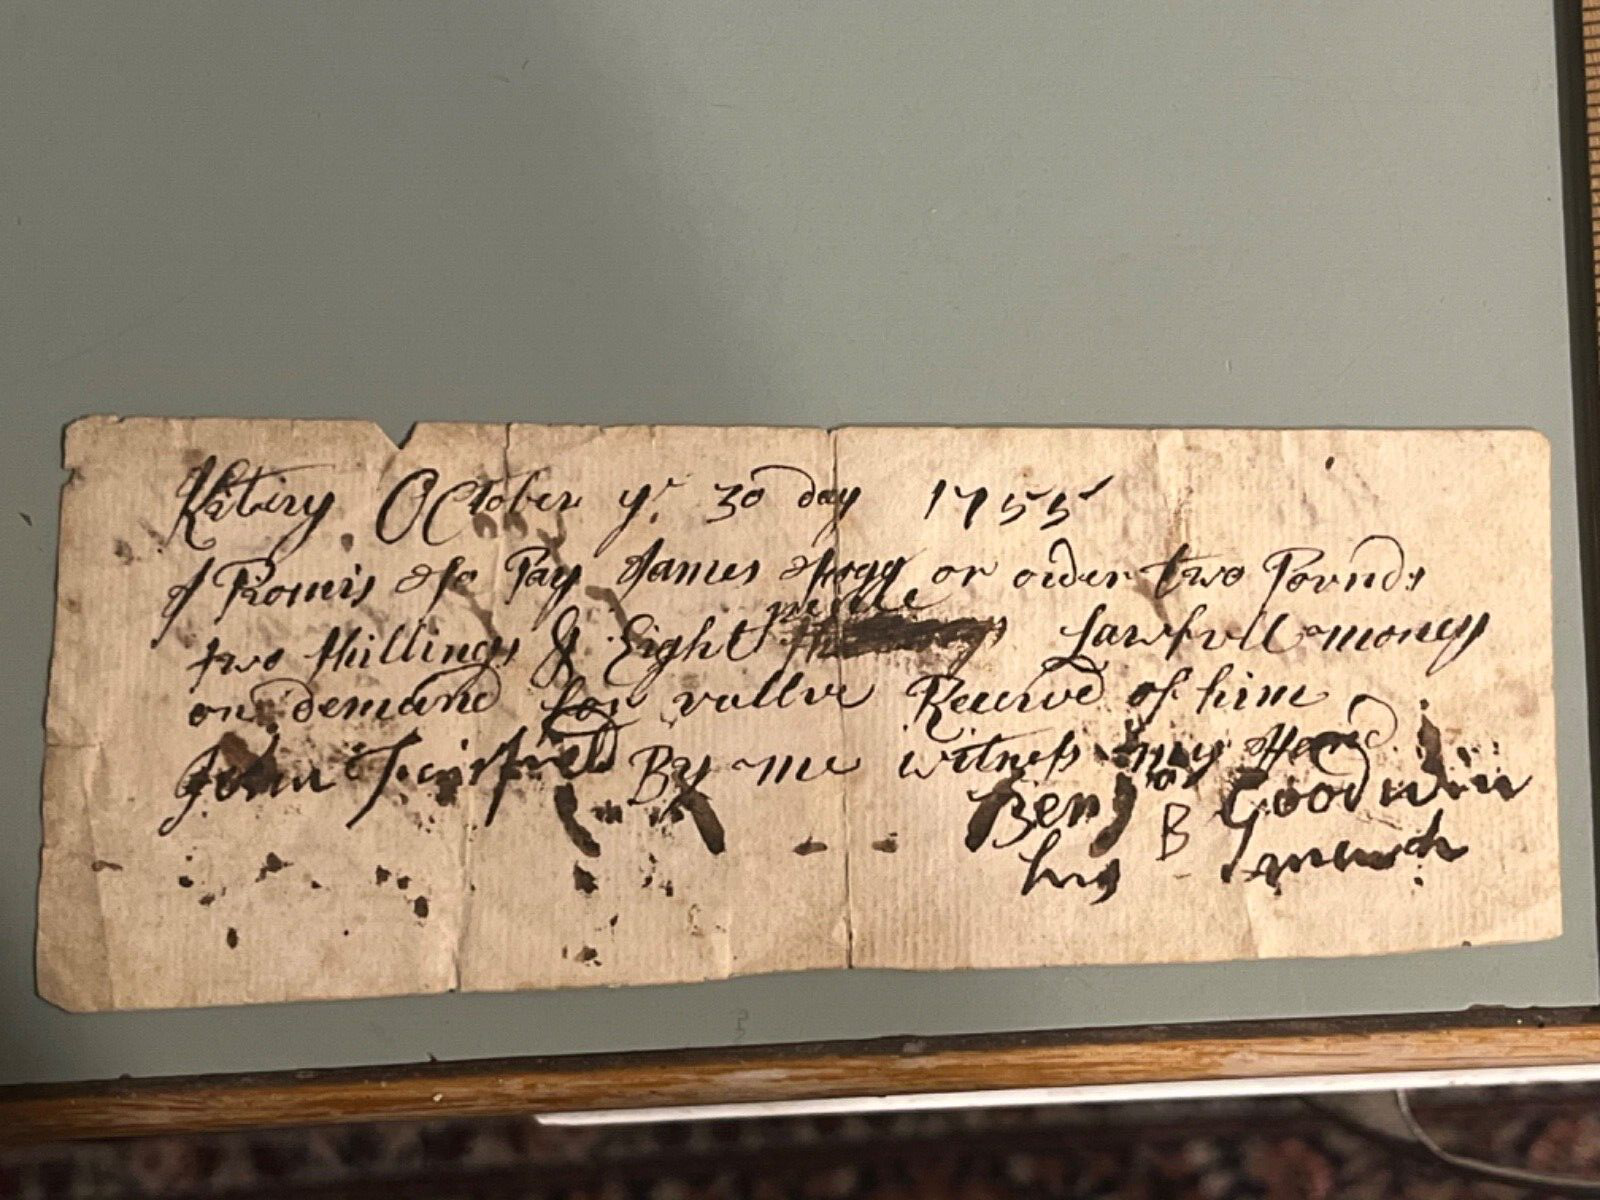 Kittery October ye 30 day 1755
I Promis to Pay James Fogg or order two Pounds
two shillings & Eight pence Lawfull money
on demand for vallue Receivd of him
John Fairfield By me witness my Hand
Benjan B Goodwin
his mark